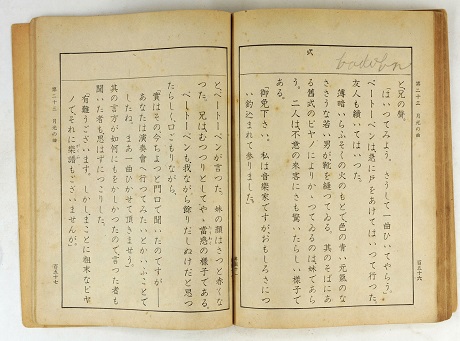 第二十三 月光の曲
百五十六
と兄の聲。
「はいってみよう。さうして一曲ひいてやらう。」
ベートーベンは急に戸をあけてはいって行った。
友人も續いてはいった。
薄暗いらふそくの火のもとで、色の青い元氣のな
ささうな若い男が、靴を縫ってゐる。其のそばにあ
る舊式のピヤノによりかゝってゐるのは、妹であら
う。二人は不意の來客にさも驚いたらしい様子で
ある。
「御免下さい。私は音樂家ですが、おもしろさについ
釣込まれて參りました。」
と、ベートーベンが言った。妹の顔はさっと赤くな
った。兄はむっつりとして、やゝ當惑の様子である。
ベートーベンも我ながら餘りだしぬけだと思っ
たらしく、口ごもりながら、
「實はその、今ちょっと門口で聞いたのですが――
あなたは演奏會へ行ってみたいとかいふことで
したね。まあ、一曲ひかせて頂きませう。」
其の言方が如何にもをかしかったので、言った者も
聞いた者も思はずにっこりした。
「有難うございます。しかし、まことに粗末なピヤ
ノで、それに樂譜もございませんが。」
第二十三 月光の曲
百五十七